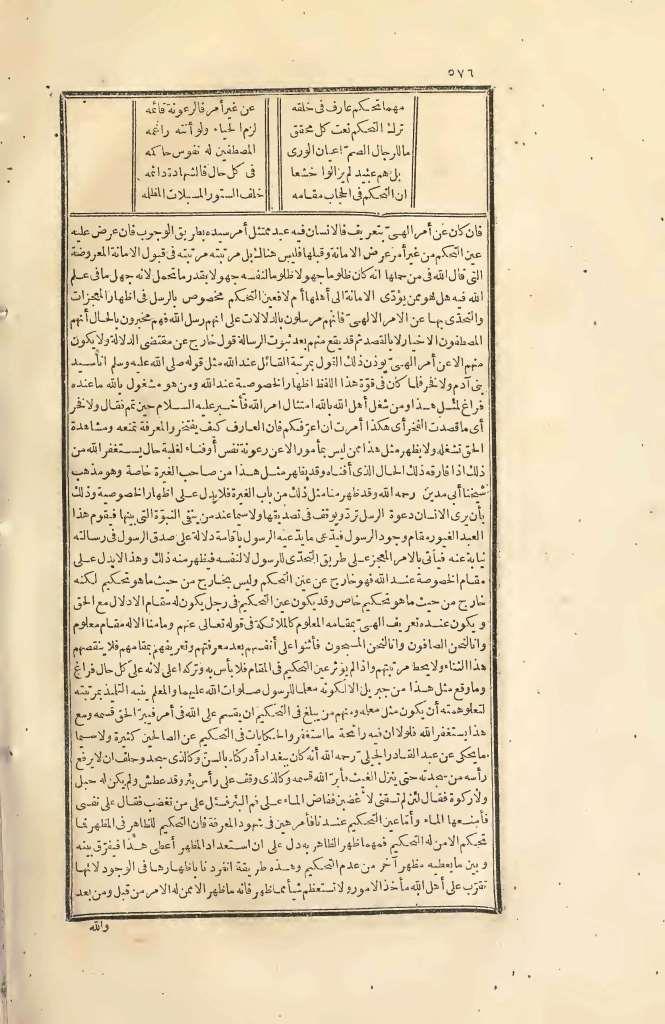 ٥٧٦
مهما تحكم عارف فى خلقه عن غير أمر فالرعونة قائمه
ترك التحكم نعت كل محقق لزم الحياء ولو أتته راغمه
ما للرجال الصم أعيان الورى المصطفين له نفوس حاكمه
بل هم عبيد لم يزالوا خشعا فى كل حال فالشهادة دائمه
ان التحكم فى الحجاب مقامه خلف الستور المسبلات المظلمه
فان كان عن أمر الهىّ بتعريف فالانسان فيه عبد ممتثل أمر سيده بطريق الوجوب فان عرض عليه
عين التحكم من غير أمر عرض الامانة وقبلها فليس هنالك بل مرتبته مرتبته فى قبول الامانة المعروضة
التى قال الله فى من حملها انه كان ظلوما جهولا ظلوما لنفسه جهولا بقدر ما تحمل لانه جهل ما فى علم
الله فيه هل هو ممن يؤدّى الامانة الى أهلها أم لا فعين التحكم مخصوص بالرسل فى اظهار المعجزات
والتحدّى بها عن الامر الالهىّ فانهم مرسلون بالدلالات على انهم رسل الله فهم مخبرون بالحال أنهم
المصطفون الاخيار لا بالقصد ثم قد يقع منهم بعد ثبوت الرسالة قول خارج عن مقتضى الدلالة ولا يكون
منهم الا عن أمر الهىّ يؤذن ذلك القول بمرتبة القائل عند الله مثل قوله صلى الله عليه وسلم انا سيد
بنى آدم ولا فخر فلما كان فى قوة هذا اللفظ اظهار الخصوصية عند الله ومن هو مشغول بالله ما عنده
فراغ لمثل هذا ومن شغل أهل الله بالله امتثال امر الله فأخبر عليه السلام حين تمم فقال ولا فخر
أى ما قصدت الفخر أى هكذا أمرت أن اعرّفكم فان العارف كيف يفتخر والمعرفة تمنعه ومشاهدة
الحق تشغله ولا يظهر مثل هذا ممن ليس بمأمور الا عن رعونة نفس أو فناء لغلبة حال يستغفر الله من
ذلك اذا فارقه ذلك الحال الذى أفناه وقد يظهر مثل هذا من صاحب الغيرة خاصة وهو مذهب
شيخنا أبى مدين رحمه الله وقد ظهر منا مثل ذلك من باب الغيرة فلا يدل على اظهار الخصوصية وذلك
بأن يرى الانسان دعوة الرسل تردّ ويوقف فى تصديقها ولاسيما عند من ينفى النبوّة التى بينها فيقوم هذا
العبد الغيور مقام وجود الرسول فيدّعى ما يدّعيه الرسول باقامة دلالة على صدق الرسول فى رسالته
نيابة عنه فيأتى بالامر المعجز على طريق التحدّى للرسول لا لنفسه فيظهر منه ذلك وهذا لا يدل على
مقام الخصوصة عند الله فهو خارج عن عين التحكم وليس بخارج من حيث ما هو تحكيم لكنه
خارج من حيث ما هو تحكيم خاص وقد يكون عين التحكيم فى رجل يكون له مقام الادلال مع الحق
ويكون عنده تعريف الهىّ بمقامه المعلوم كالملائكة فى قوله تعالى عنهم وما منا الا له مقام معلوم
وانا لنحن الصافون وانا لنحن المسبحون فأثنوا على أنفسهم بعد معرفتهم وتعريفهم بمقامهم فلا ينقصهم
هذا الثناء ولا يحط مرتبتهم واذا لم يؤثر عين التحكيم فى المقام فلا بأس به وتركه اعلى لانه على كل حال فراغ
وما وقع مثل هذا من جبريل الا لكونه معلما للرسول صلوات الله عليهما والمعلم ينبه التلميذ بمرتبته
لتعلو همته أن يكون مثل معلمه ومنهم من يبلغ فى التحكيم ان يقسم على الله فى أمر فيبرّ الحق قسمه ومع
هذا يستغفر الله فلولا ان فيه رائحة ما استغفر والحكايات فى التحكيم عن الصالحين كثيرة ولاسيما
ما يحكى عن عبد القادر الجيلى رحمه الله أنه كان ببغداد أدركناه بالسنّ وكالذى سجد وحلف ان لا يرفع
رأسه من سجدته حتى ينزل الغيث فأبرّ الله قسمه وكالذى وقف على رأس بئر وقد عطش ولم يكن له حبل
ولا ركوة فقال لئن لم تسقنى لأغضبنّ ففاض الماء على فم البئر فسئل على من تغضب فقال على نفسى
فأمنعها الماء وأما عين التحكيم عندنا فأمر هين فى شهود المعرفة فان التحكيم للظاهر فى المظهر فما
تحكم الا من له التحكيم فمهما ظهر الظاهر به دل على ان استعداد المظهر أعطى هذا فيفرق بينه
وبين ما يعطيه مظهر آخر من عدم التحكيم وهذه طريقة انفردنا باظهارها فى الوجود لانها
تقرّب على أهل الله مأخذ الامور ولا تستعظم شيأ مما ظهر فانه ما ظهر الا ممن له الامر من قبل ومن بعد
والله